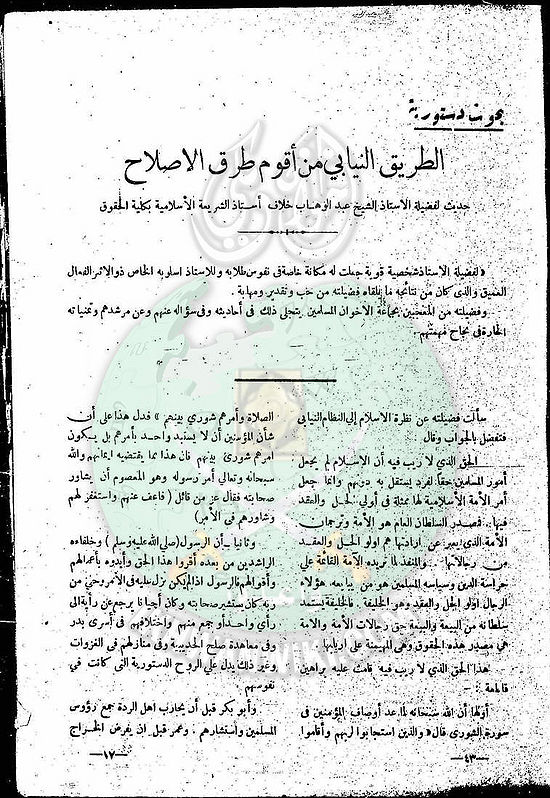 بحوث دستورية
الطريق النيابي من أقوم طرق الاصلاح
حديث لفضيلة الاستاذ الشيخ عبد الوهاب خلاف أستاذ الشريعة الأسلامية بكلية الحقوق
« لفضيلة الاستاذ شخصية قوية جعلت له مكانة خاصة فى نفوس طلابه وللاستاذ اسلوبه الخاص ذو الاثر الفعال
العميق والذى كان من نتائجه ما يلقاه فضيلته من حب وتقدير ومهابة .
وفضيلته من المعجبين بجماعة الأخوان المسلمين يتجلى ذلك فى أحاديثه وفى سؤاله عنهم وعن مرشدهم وتمنياته
الحارة فى نجاح مهمتهم
سألت فضيلته عن نظرة الاسلام إلى النظام النيابى
فتفضل بالجواب وقال
الحق الذى لا ريب فيه أن الاسلام لم يجعل
أمور المسلمين حقا لفرد يستقل به دونهم وانما جعل
أمر الأمة الأسلامية لها ممثلة فى أولى الحل والعقد
فيها . فمصدر السلطان العام هو الأمة وترجمان
الأمة الذى يعبر عن ارادتها هم اولو الحل والعقد
من رجالاتها . والمنفذ لما تريده الأمة القائمة على
حراسة الدين وسياسه المسلمين هو من يبايعه هؤلاء
الرجال اولو الحل والعقد وهو الخليفة . فالخليفة يستمد
سلطانه من البيعة والبيعة حق رجالات الأمة والامة
هى مصدر هذه الحقوق وهى المهيمنة على اربابها
هذا الحق الذى لا ريب فيه قامت عليه براهين
قاطعة
أولها أن الله سبحانه لما عد أوصاف المؤمنين فى
سورة الشورى قال « والذين استجابوا لربهم وأقاموا
—٤٣—
الصلاة وأمرهم شورى بينهم » فدل هذا على أن
شأن المؤمنين أن لا يستبد واحد بأمرهم بل يكون
امرهم شورى بينهم فان هذا مما يقتضيه ايمانهم والله
سبحانه وتعالى أمر رسوله وهو المعصوم أن يشاور
صحابته فقال عز من قائل ( فاعف عنهم واستغفر لهم
وشاورهم فى الأمر )
وثانيا – أن الرسول (صلى الله عليه وسلم) وخلفاءه
الراشدين من بعده أقروا هذا الحق وأيدوه بأعمالهم
وأقوالهم فالرسول اذا لم يكن نزل عليه فى الأمر وحى من
ربه كان يستشير صحابته وكان أحيانا يرجع عن رأيه الى
رأى واحد أو جمع منهم واختلافهم فى أسرى بدر
وفى معاهدة صلح الحديبية وفى منازلهم فى الغزوات
وغير ذلك يدل على الروح الدستورية التى كانت فى
نفوسهم
وأبو بكر قبل أن يحارب اهل الردة جمع رؤوس
المسلمين واستشارهم . وعمر قبل ان يفرض الخراج
—١٧—